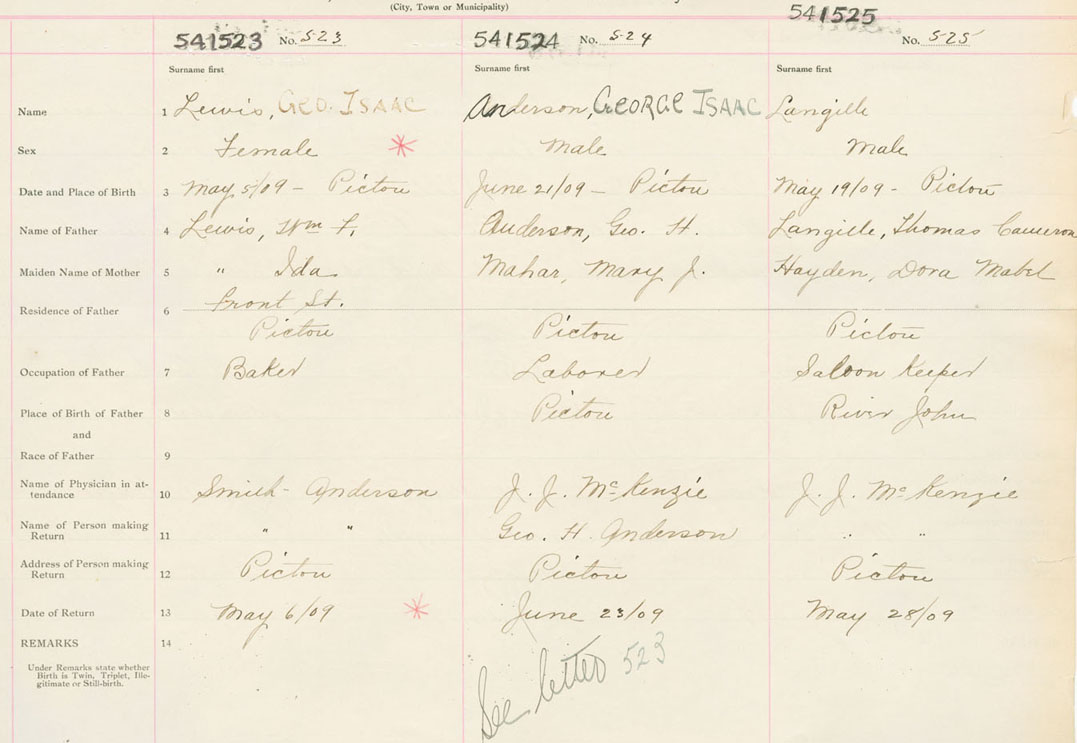 (City, Town or Municipality)
541523 No. 523 541524 No. 524 541525 No. 525
Surname first Surname first Surname first
Name 1 Lewis, GEO. ISAAC Anderson, GEORGE ISAAC Langille
Sex 2 Female * Male Male
Date and Place of Birth 3 May 5/09 - Pictou June 21/09 - Pictou May 19/09 - Pictou
Name of Father 4 Lewis, Wm F. Anderson, Geo. H. Langille, Thomas Cameron
Maiden Name of Mother 5 " Ida Mahar, Mary J. Hayden, Dora Mabel
Front St.
Residence of Father 6
Pictou Pictou Pictou
Occupation of Father 7 Baker Laborer Saloon Keeper
Place of Birth of Father 8 Pictou River John
and
Race of Father 9
Name of Physician in at-
tendance 10 Smith - Anderson J. J. McKenzie J. J. McKenzie
Name of Person making
Return 11 " " Geo. H. Anderson " "
Address of Person making
Return 12 Pictou Pictou Pictou
Date of Return 13 May 6/09 * June 23/09 May 28/09
REMARKS 14
Under Remarks state whether
Birth is Twin, Triplet, Ille-
gitimate or Still-birth.
See letter 523